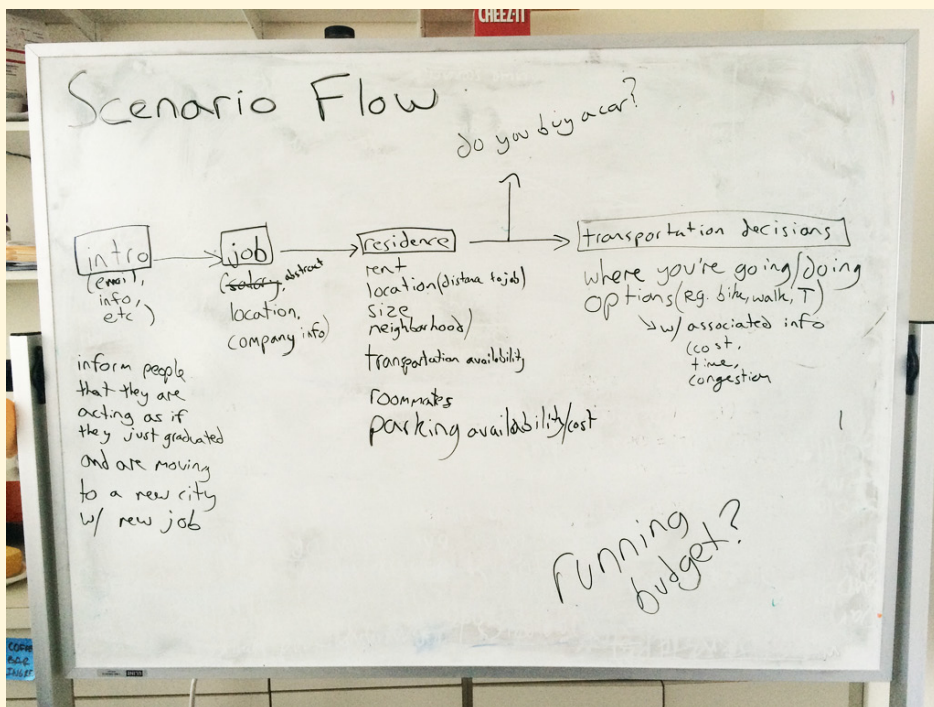 CHEEZ-IT
Scenario Flow
do you buy a car?
intro
(email,
info,
etc)
inform people
that they are
acting as if
they just graduated
and are moving
to a new city
w/ new job
job
(salary, abstract
location,
company info)
residence
rent
location (distance to job)
size
neighborhood)
transportation availability
roommates
parking availability/cost
transportation decisions
where you're going/doing
options (e.g. bike, walk, T)
w/ associated info
(cost,
time,
congestion
running
budget?
COFFEE
BAR